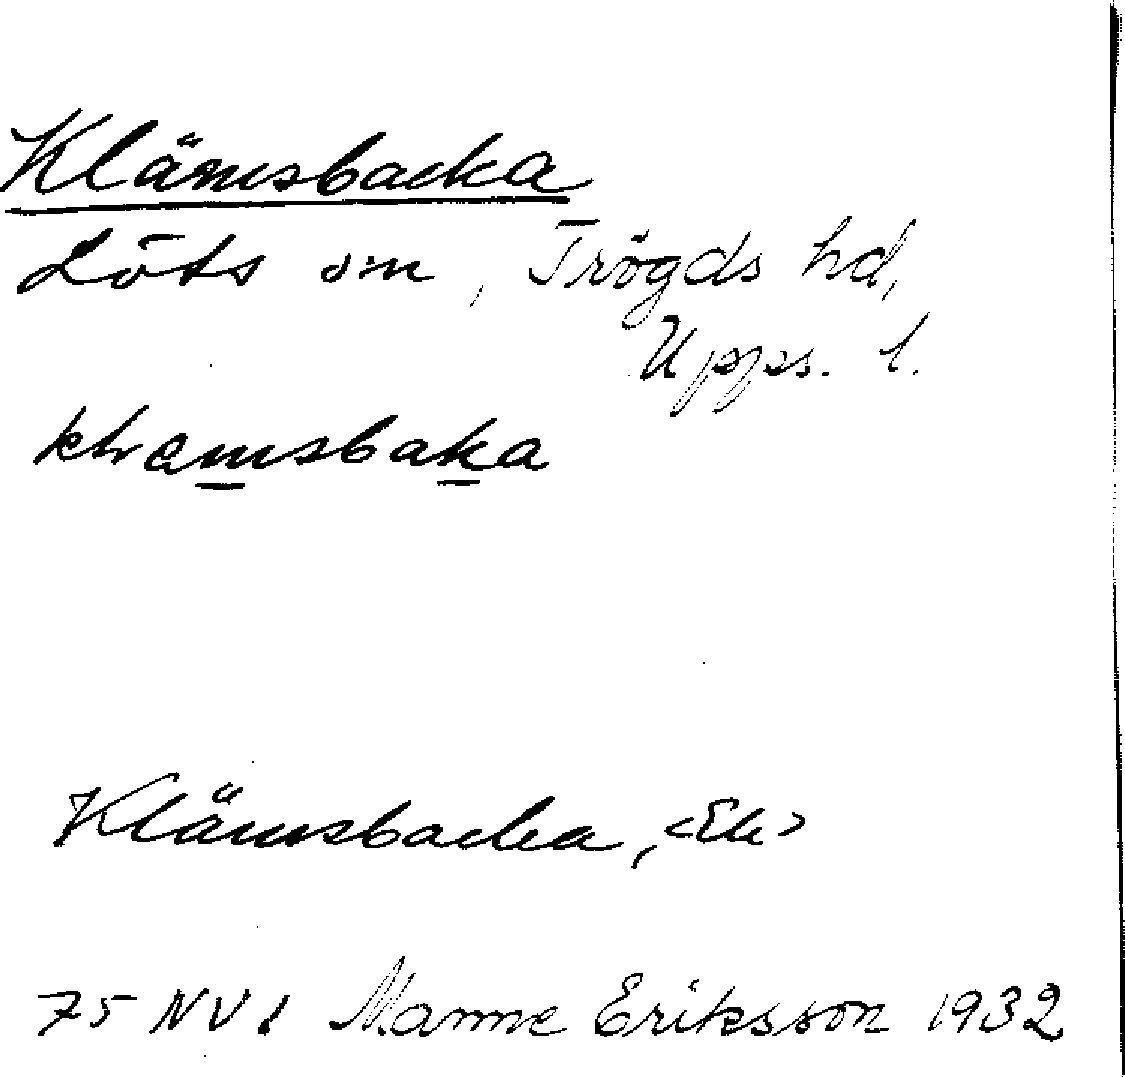 Klämsbacka
Löts sn, Trögds hd,
Upps. l.
klemsbaka
Klämsbacka, <Ek>
75 NV 1 Manne Eriksson 1932